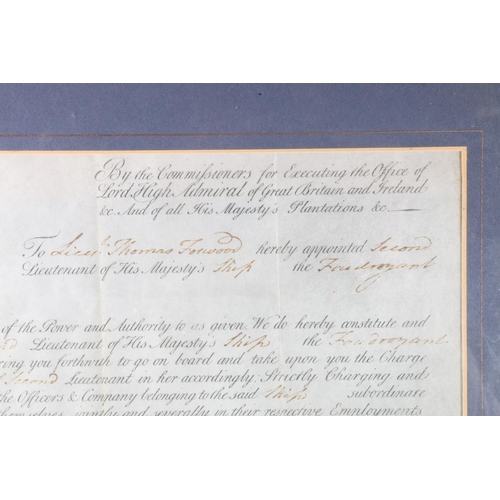 By the Commissioners for Executing the Office of
Lord High Admiral of Great Britain and Ireland
&c. And of all His Majesty's Plantations &c.
To Lieut. Thomas Forwood hereby appointed Second
Lieutenant of His Majesty's Ship the Foudroyant
of the Power and Authority to us given. We do hereby constitute and
Lieutenant of His Majesty's Ship the Foudroyant
ring you forthwith to go on board and take upon you the Charge
of Second Lieutenant in her accordingly. Strictly Charging and
the Officers & Company belonging to the said Ship subordinate
themselves jointly and severally in their respective Employments